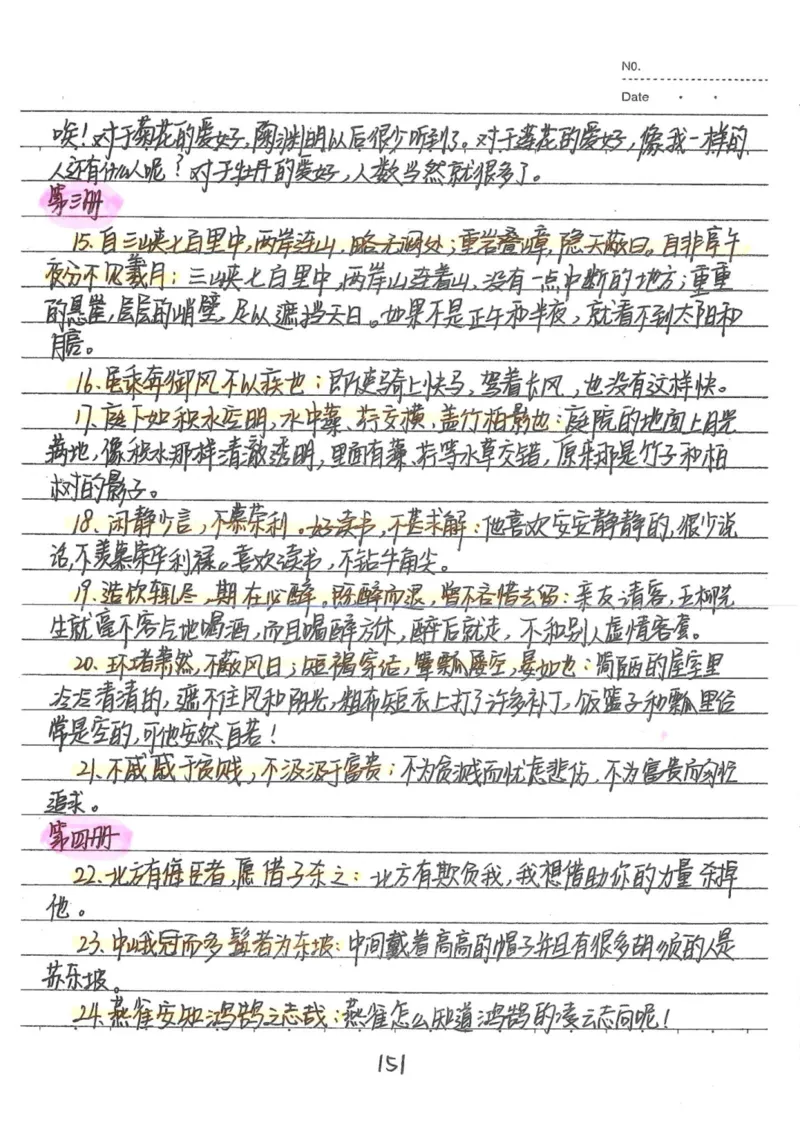 NO.
Date
唉！对于菊花的爱好，陶渊明以后很少听到了。对于莲花的爱好，像我一样的
人还有什么人呢？对于牡丹的爱好，人数当然就很多了。
第三册
15.自三峡七百里中，两岸连山，略无阙处；重岩叠嶂，隐天蔽日。自非亭午
夜分不见曦月：三峡七百里中，两岸山连着山，没有一点中断的地方；重重
的悬崖，层层的峭壁，足以遮挡天日。如果不是正午和半夜，就看不到太阳和
月亮。
16.虽乘奔御风不以疾也：即使骑上快马，驾着长风，也没有这样快。
17.庭下如积水空明，水中藻、荇交横，盖竹柏影也：庭院的地面上月光
满地，像积水那样清澈透明，里面有藻、荇等水草交错，原来那是竹子和柏
树的影子。
18.闲静少言，不慕荣利。好读书，不甚求解：他喜欢安安静静的，很少说
话，不羡慕荣华利禄。喜欢读书，不钻牛角尖。
19.造饮辄尽，期在必醉。既醉而退，曾不吝惜去留：亲友请客，五柳先
生就毫不客气地喝酒，而且喝醉方休，醉后就走，不和别人虚情客套。
20.环堵萧然，不蔽风日；短褐穿结，箪瓢屡空，晏如也：简陋的屋室里
冷冷清清的，遮不住风和阳光，粗布短衣上打了许多补丁，饭篮子和瓢里经
常是空的，可他安然自若！
21.不戚戚于贫贱，不汲汲于富贵：不为贫贱而忧虑悲伤，不为富贵而匆忙
追求。
第四册
22.北方有侮臣者，愿借子杀之：北方有欺负我，我想借助你的力量杀掉
他。
23.中峨冠而多髯者为东坡：中间戴着高高的帽子并且有很多胡须的人是
苏东坡。
24.燕雀安知鸿鹄之志哉：燕雀怎么知道鸿鹄的凌云志向呢！
151